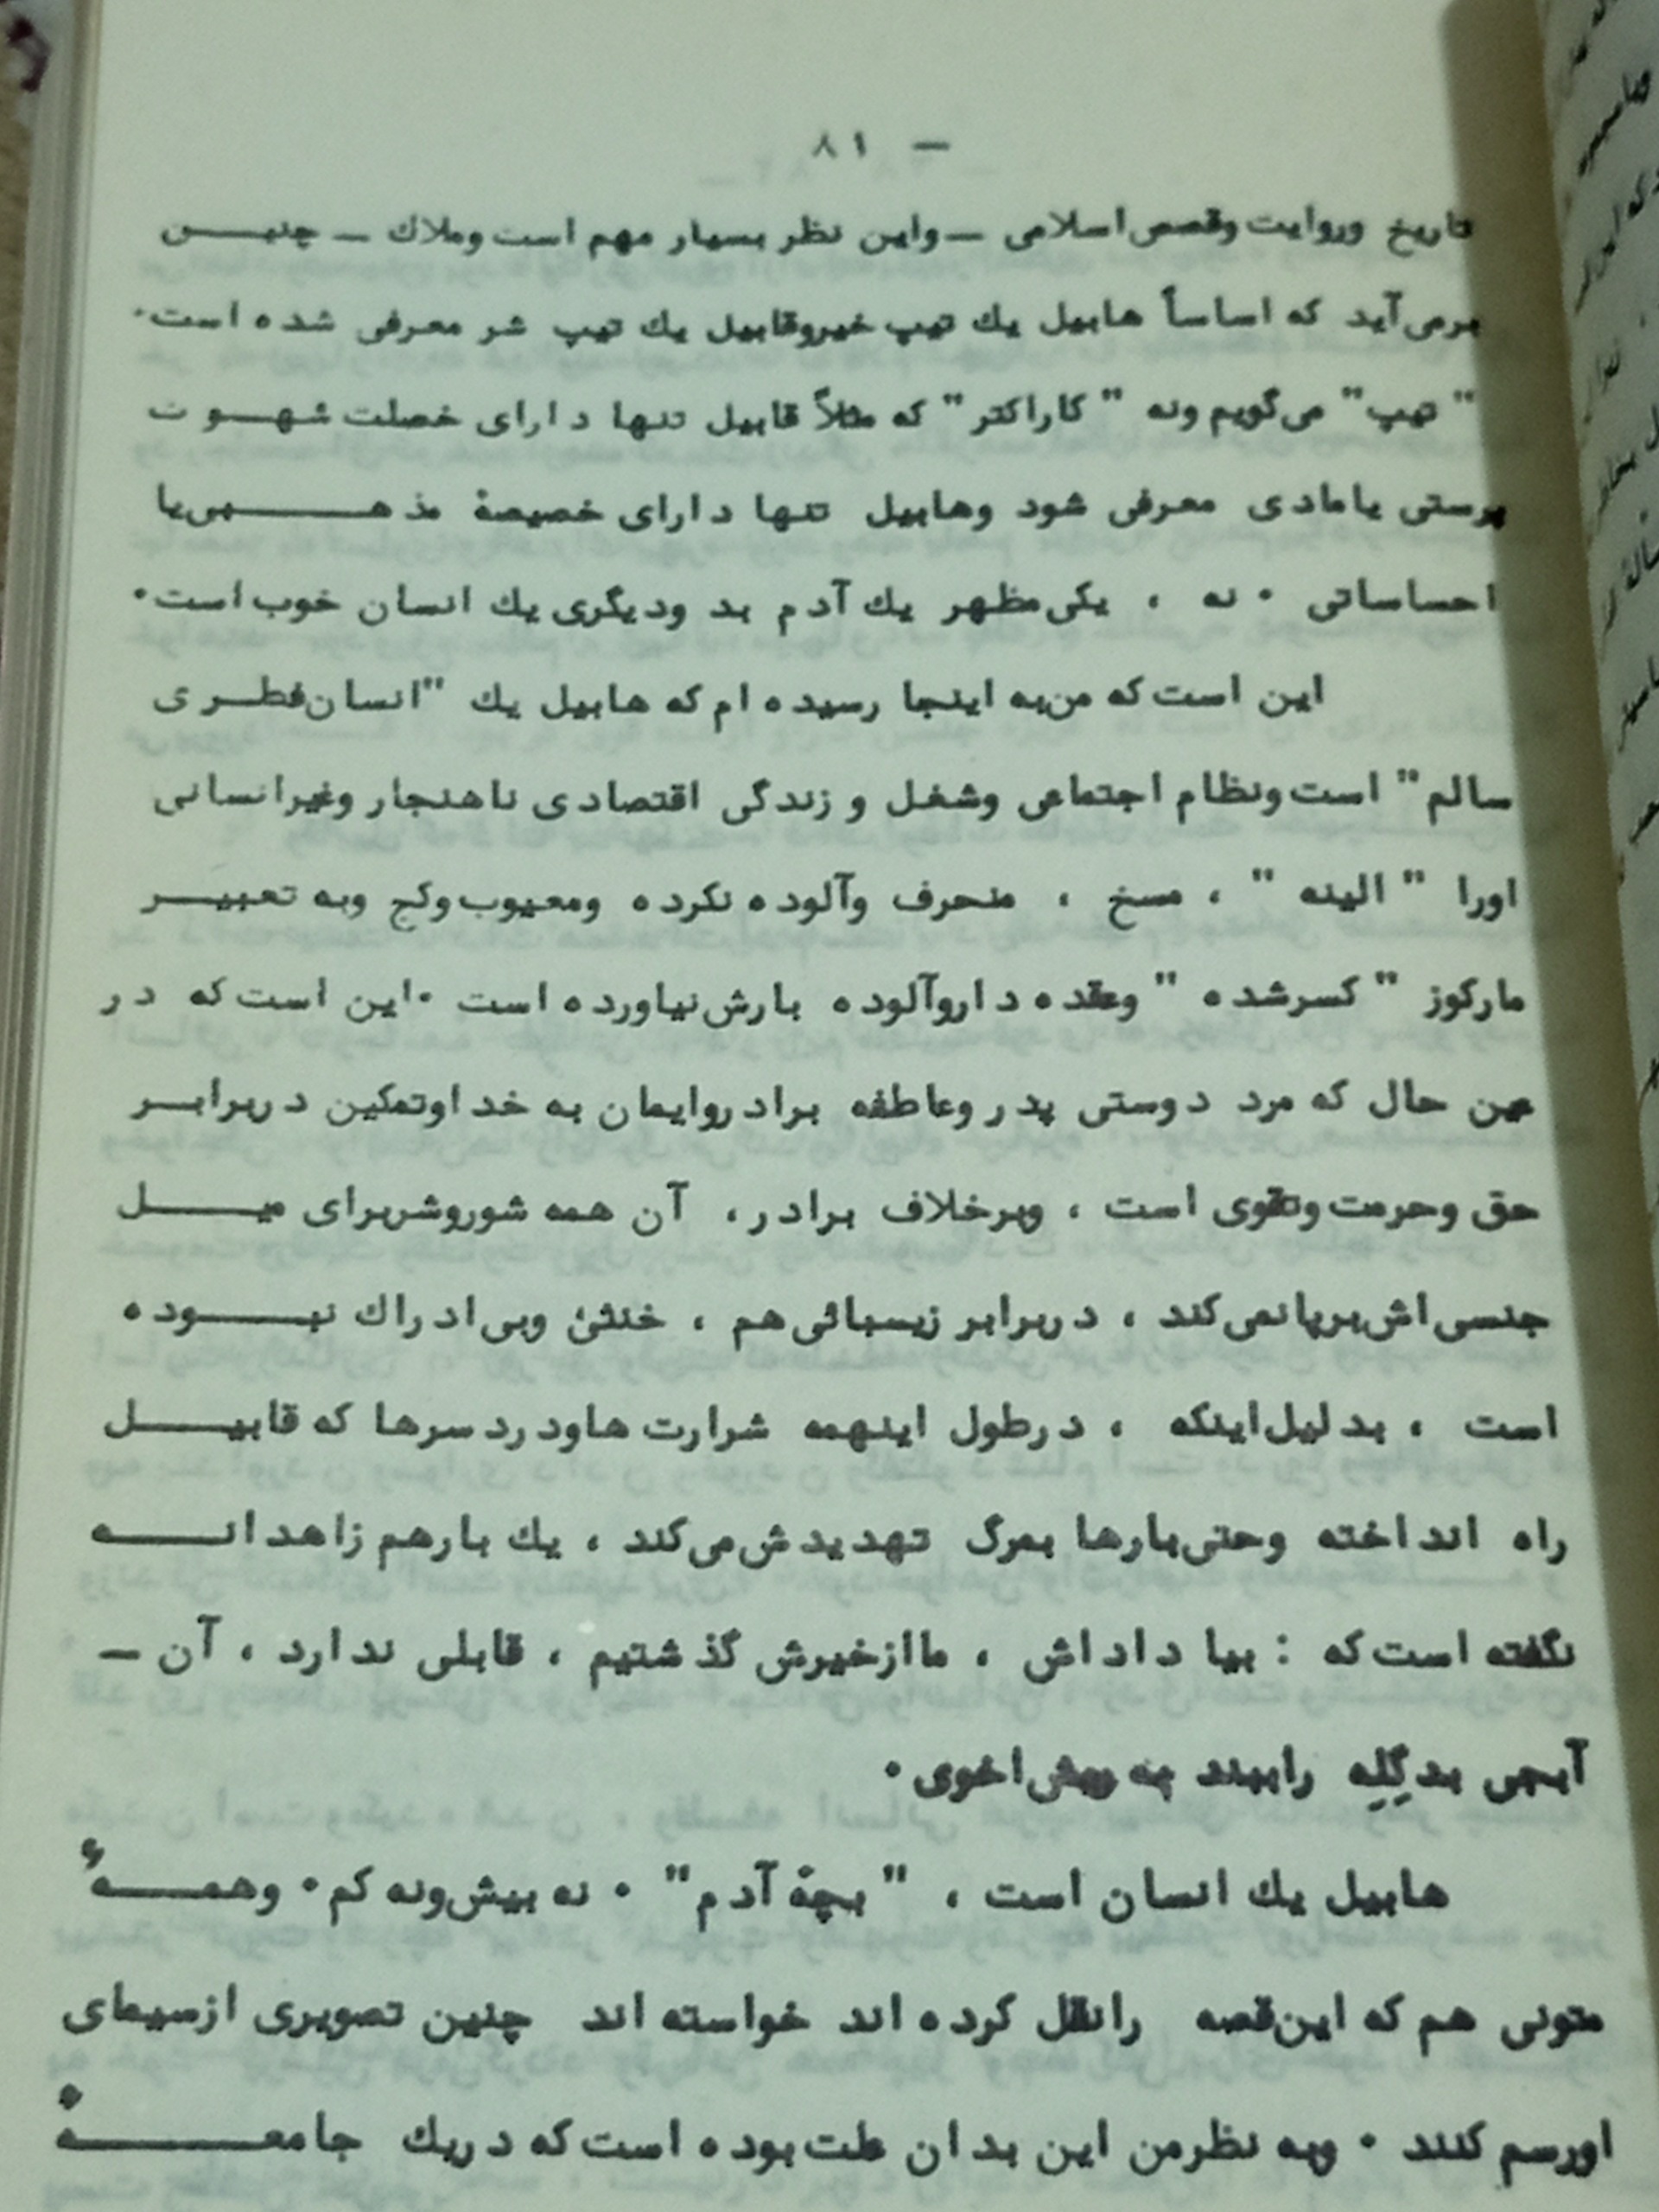 — ٨١
تاریخ وروایت وقصص اسلامی — واین نظر بسیار مهم است وملاك — چنیـــن
برمی‌آید که اساساً هابیل یك تیپ خیروقابیل یك تیپ شر معرفی شده است.
" تیپ" می‌گویم ونه " کاراکتر" که مثلاً قابیل تنها دارای خصلت شهـــوت
پرستی یامادی معرفی شود وهابیل تنها دارای خصیصهٔ مذهـــــبی‌یا
احساساتی . نه ، یکی‌مظهر یك آدم بد ودیگری یك انسان خوب است.
این است که من‌به اینجا رسیده ام که هابیل یك "انسان‌فطـــری
سالم" است ونظام اجتماعی وشغل و زندگی اقتصادی ناهنجار وغیرانسانی
اورا " الینه " ، مسخ ، منحرف وآلوده نکرده ومعیوب وکج وبه تعبیـــر
مارکوز " کسرشده " وعقده داروآلوده بارش‌نیاورده است . این است که در
عین حال که مرد دوستی پدر وعاطفه برادروایمان به خداوتمکین دربرابـــر
حق وحرمت وتقوی است ، وبرخلاف برادر، آن همه شوروشربرای میـــــل
جنسی‌اش‌برپانمی‌کند ، دربرابر زیـبـائی‌هم ، خنثیٰ وبی‌ادراك نبـــــوده
است ، بدلیل‌اینکه ، درطول اینهمه شرارت هاودردسرها که قابیـــــل
راه انداخته وحتی‌بارها بمرگ تهدیدش‌می‌کند ، یك بارهم زاهدانـــــه
نگفته است که : بیا داداش ، ماازخیرش گذشتیم ، قابلی ندارد ، آن —
آبجی بدگِلِه راببند به ریش‌اخوی .
هابیل یك انسان است ، " بچهٔ آدم" . نه بیش‌ونه کم . وهمـــــهٔ
متونی هم که این‌قصه رانقل کرده اند خواسته اند چنین تصویری ازسیمای
اورسم کنند . وبه نظرمن این بدان علت بوده است که دریك جامعـــــهٔ